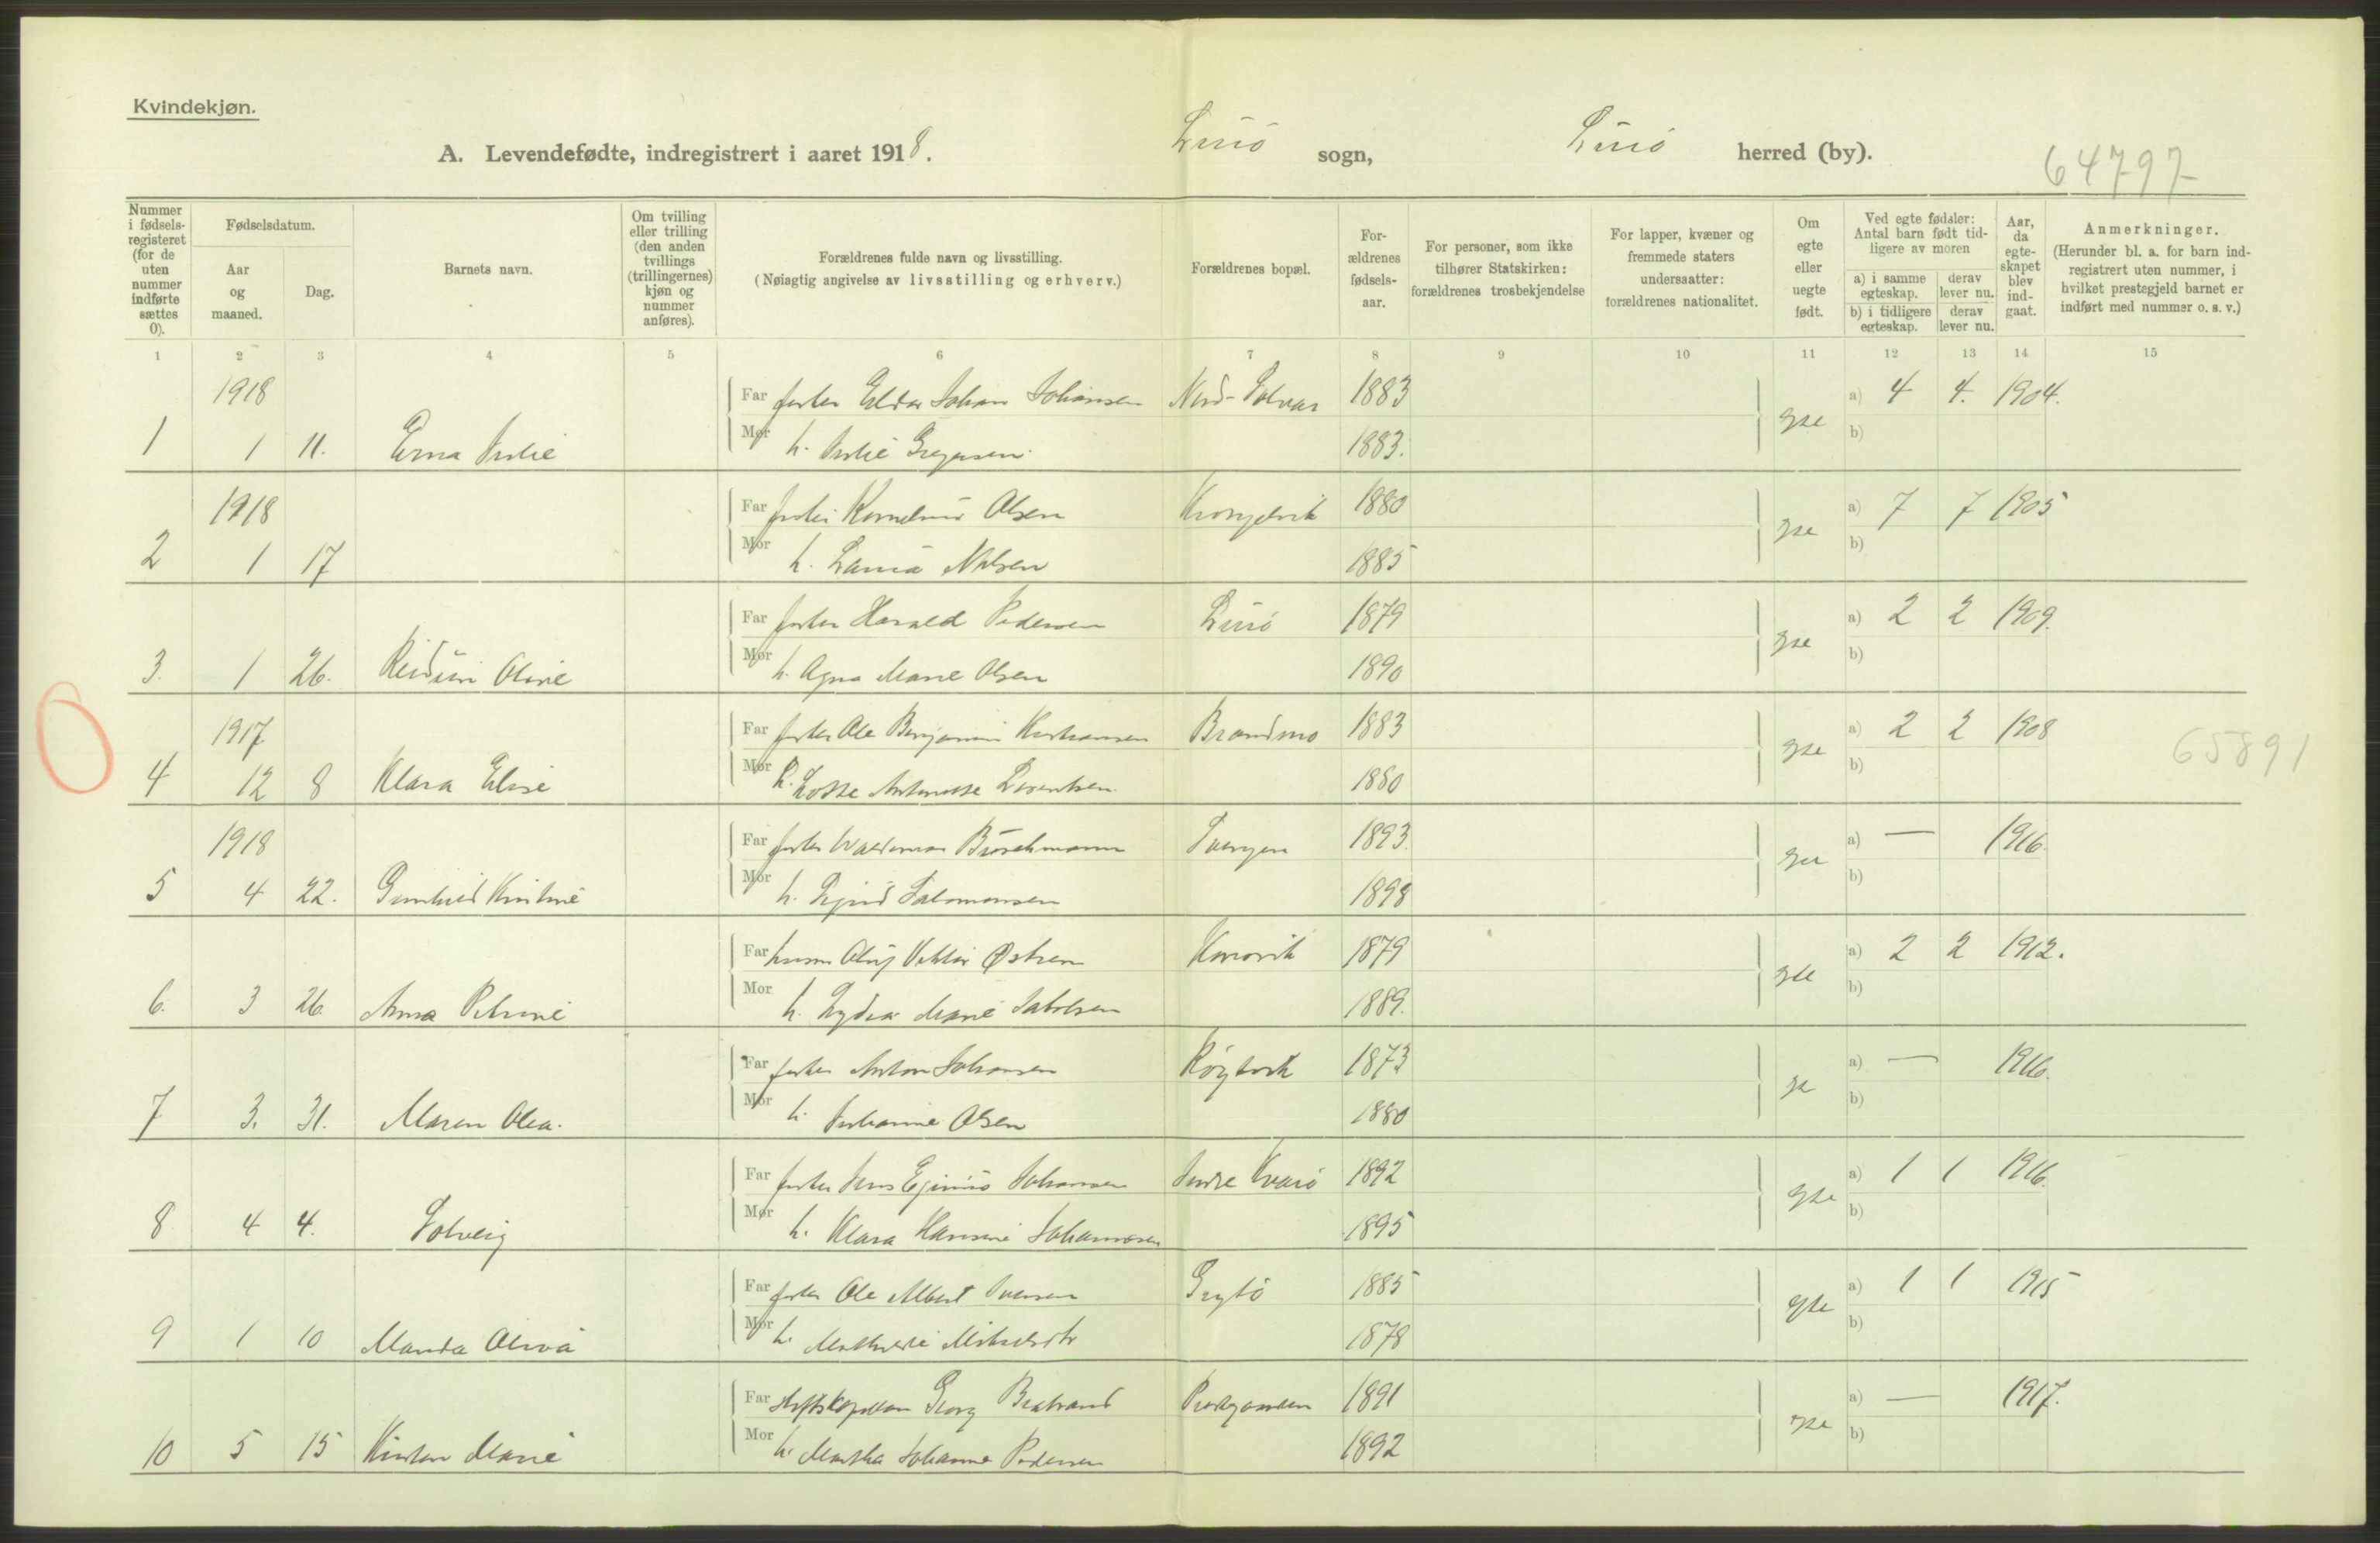 Kvindekjøn.
A. Levendefødte, indregistrert i aaret 1918. Lurø sogn, Lurø herred (by).
64797
Nummer i fødselsregisteret (for de uten nummer indførte sættes 0).
Fødselsdatum.
Aar og maaned.
Dag.
Barnets navn.
Om tvilling eller trilling (den anden tvillings (trillingernes) kjøn og nummer anføres).
Forældrenes fulde navn og livsstilling.
(Nøiagtig angivelse av livsstilling og erhverv.)
Forældrenes bopæl.
Forældrenes fødselsaar.
For personer, som ikke tilhører Statskirken: forældrenes trosbekjendelse
For lapper, kvæner og fremmede staters undersaatter: forældrenes nationalitet.
Om egte eller uegte født.
Ved egte fødsler: Antal barn født tidligere av moren
a) i samme egteskap. derav lever nu.
b) i tidligere egteskap. derav lever nu.
Aar, da egteskapet blev indgaat.
Anmerkninger.
(Herunder bl. a. for barn indregistrert uten nummer, i hvilket prestegjeld barnet er indført med nummer o. s. v.)
1 2 3 4 5 6 7 8 9 10 11 12 13 14 15
1918 Far fisker Johan Johansen Nord-Solvær 1883 a) 4 4. 1904.
1 1 11. Erna Julie Mor h. Julie 1883. egte b)
1918 Far fisker Kornelius Olsen 1880 a) 7 7 1905
2 1 17 Mor h. Laura Nilsen 1885 egte b)
Far fisker Harald Pedersen Lurø 1879 a) 2 2 1909.
3. 1 26. Reidun Oline Mor h. Agna Marie Olsen 1890 egte b)
1917 Far fisker Ole Benjamin Kristiansen Brandmo 1883 a) 2 2 1908
4 12 8 Klara Elise Mor h. Lorentsen 1880 egte b) 65891
1918 Far fisker Waldemar Buschmann 1893. a) — 1916.
5 4 22. Gunhild Kristine Mor h. Sigrid Salomonsen 1898 egte b)
Far Oluf Viktor Østrem Konsvik 1879 a) 2 2 1912.
6. 3 26 Anna Petrine Mor h. Lydia Marie Jakobsen 1889. egte b)
Far fisker Anton Johansen 1873 a) — 1916.
7 3. 31. Maren Olea. Mor h. Johanne Olsen 1880 b)
Far fisker Jens Johansen Indre Kvarø 1892 a) 1 1 1916.
8 4 4. Solveig Mor h. Klara Hansine Johannesen 1895 egte b)
Far fisker Ole Albert Svensen 1885 a) 1 1 1915
9 1 10 Manda Oliva Mor h. 1878 egte b)
Far stiftskapellan Georg Bratrand Prestgaarden 1891 a) — 1917.
10 5 15 Kirsten Marie Mor h. Martha Johanne Pedersen 1892 egte b)